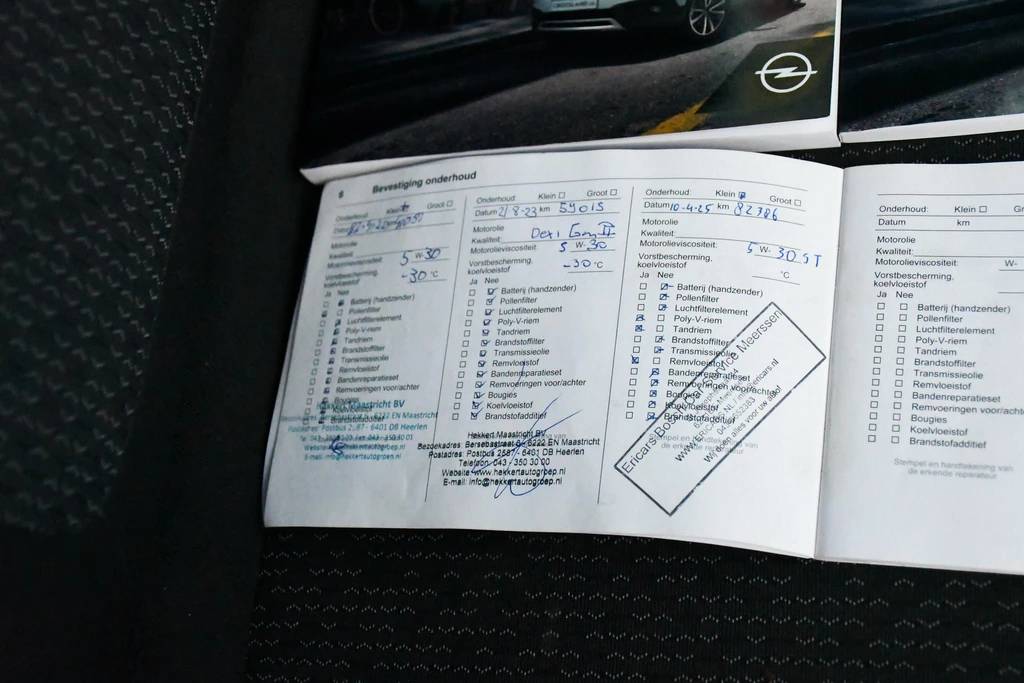 6 Bevestiging onderhoud
Onderhoud: Klein Groot
Datum km
Motorolie
Kwaliteit:
Motorolieviscositeit: 5 W-30
Vorstbescherming,
koelvloeistof -30 °C
Ja Nee
Batterij (handzender)
Pollenfilter
Luchtfilterelement
Poly-V-riem
Tandriem
Brandstoffilter
Transmissieolie
Remvloeistof
Bandenreparatieset
Remvoeringen voor/achter
Bougies
Koelvloeistof
Brandstofadditief
Hekkert Maastricht BV
6222 EN Maastricht
Postadres: Postbus 2587 - 6401 DB Heerlen
Tel: 043 - 350 30 00 Fax: 043 - 350 30 01
E-mail: info@hekkertautogroep.nl
Onderhoud: Klein Groot
Datum 2/8-23 km 59015
Motorolie
Kwaliteit: Dexi Gen II
Motorolieviscositeit: 5 W-30
Vorstbescherming,
koelvloeistof -30 °C
Ja Nee
Batterij (handzender)
Pollenfilter
Luchtfilterelement
Poly-V-riem
Tandriem
Brandstoffilter
Transmissieolie
Remvloeistof
Bandenreparatieset
Remvoeringen voor/achter
Bougies
Koelvloeistof
Brandstofadditief
Hekkert Maastricht BV
Bezoekadres: 6222 EN Maastricht
Postadres: Postbus 2587 - 6401 DB Heerlen
Telefoon: 043 - 350 30 00
Website: www.hekkertautogroep.nl
E-mail: info@hekkertautogroep.nl
Onderhoud: Klein Groot
Datum 10-4-25 km 82386
Motorolie
Kwaliteit:
Motorolieviscositeit: 5 W-30 ST
Vorstbescherming,
koelvloeistof °C
Ja Nee
Batterij (handzender)
Pollenfilter
Luchtfilterelement
Poly-V-riem
Tandriem
Brandstoffilter
Transmissieolie
Remvloeistof
Bandenreparatieset
Remvoeringen voor/achter
Bougies
Koelvloeistof
Brandstofadditief
Ericars Service Meerssen
Wij doen alles voor uw auto!
Stempel en handtekening van
de erkende reparateur
Onderhoud: Klein
Datum km
Motorolie
Kwaliteit:
Motorolieviscositeit: W-
Vorstbescherming,
koelvloeistof
Ja Nee
Batterij (handzender)
Pollenfilter
Luchtfilterelement
Poly-V-riem
Tandriem
Brandstoffilter
Transmissieolie
Remvloeistof
Bandenreparatieset
Remvoeringen voor/achter
Bougies
Koelvloeistof
Brandstofadditief
Stempel en handtekening van
de erkende reparateur